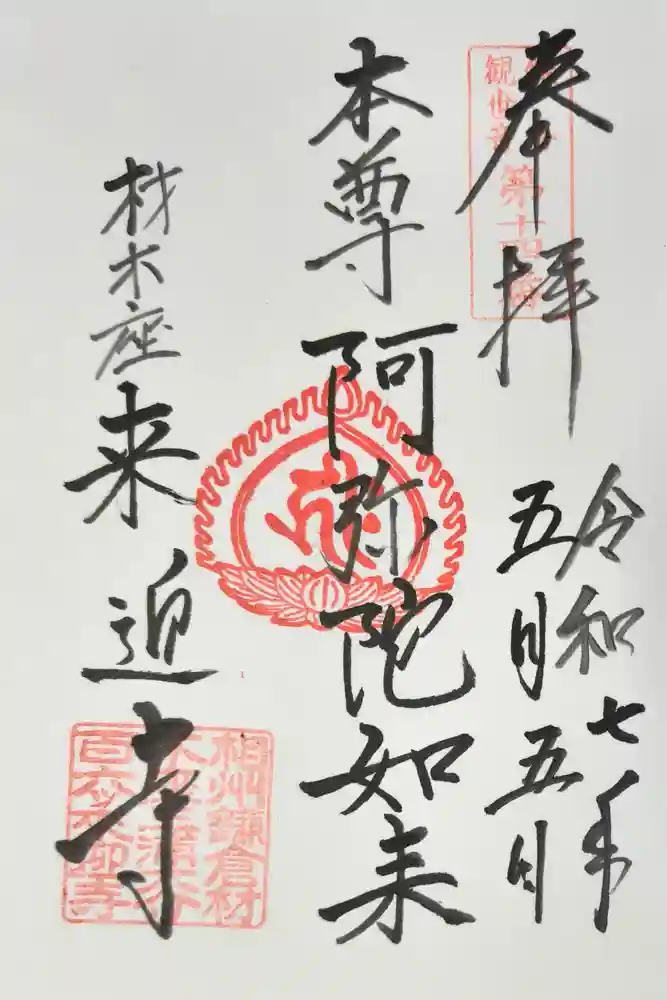 奉拝
令和七年
五月五日
観世音
第十四番
本尊 阿弥陀如来
材木座 来迎寺
相州鎌倉材